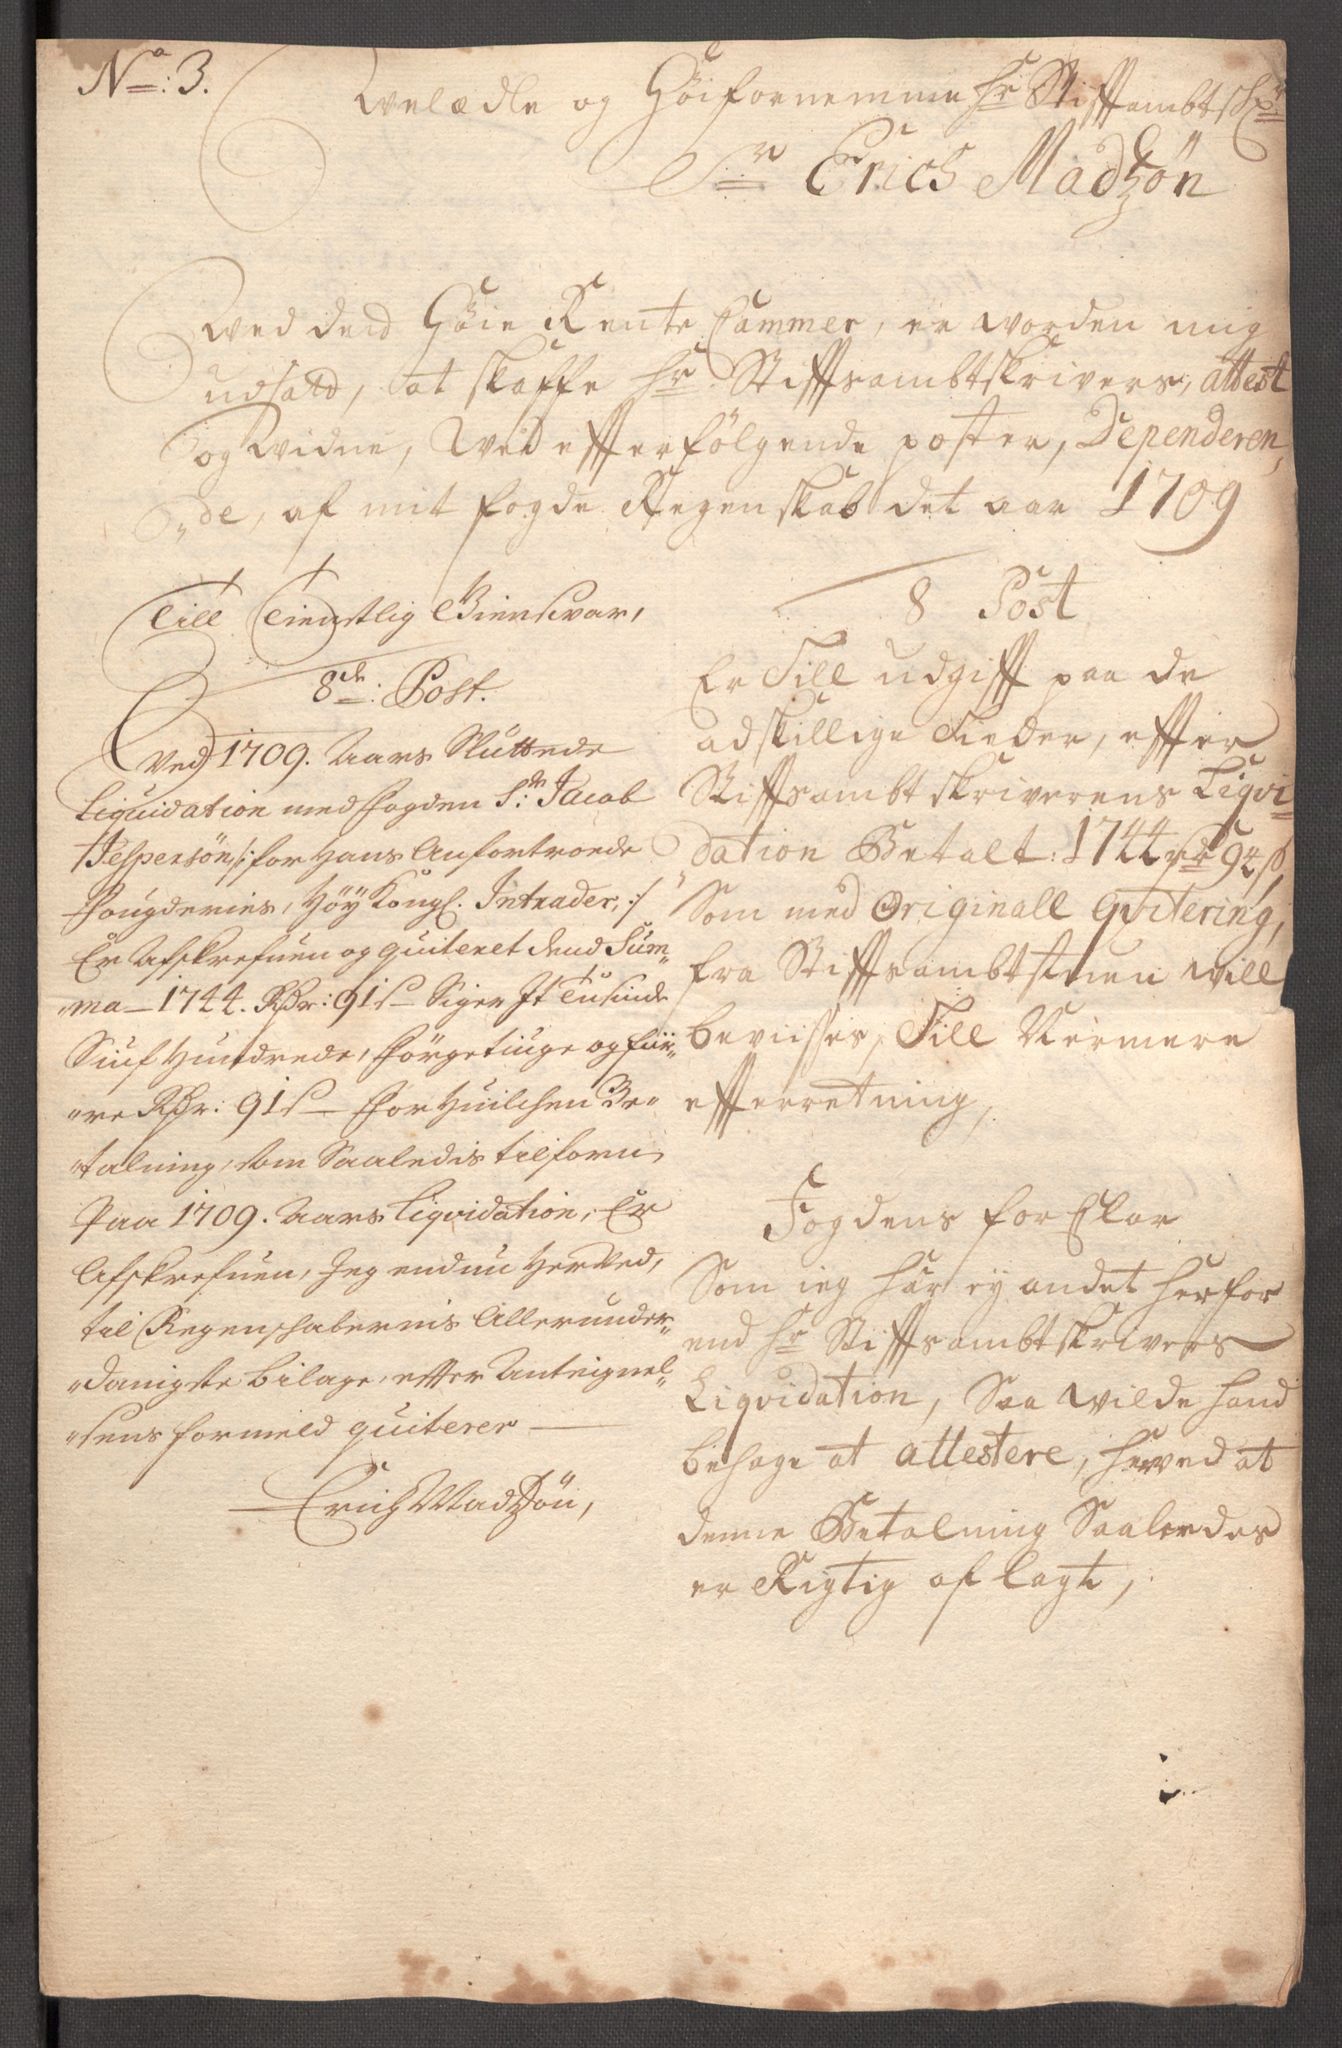 No: 3.
Welædle og Høifornemme Hr Stiffambtschr
Sr Erich Madtzøn
Wed dend Høie Rente Cammer, er worden mig
udsatt, at skaffe Hr Stiffsambtskrivers, attest
og widne, Wed effterfølgende poster, Dependeren,
"de, af mit fogde Regenskab det aar 1709
Till Tienstlig Giensvar,
8de: Post.
Ved 1709. Aars Sluttede
Liquidation med fogden Sr: Jacob
Jespersøn /: for Hans Anfortroede
Fougderies, Høy Kongl. Intrader, :/
Er Afskrefuen og quiteret dend Sum¬
"ma — 1744. Rdr: 91 s Siger Et Tusinde
Siuf Hundrede,førgetiuge og fiir¬
"re Rdr: 91 s — for Huilchen Be¬
"talning, som Saaledis tilforn
Paa 1709. Aars Liqvidation, Er
Afskrefuen, Jeg endnu Herved,
til Regenschabernis Allerunder¬
"danigste bilage, efter Anteignel¬
"sens formeld quiterer —
Erich Madtzøn,
8 Post
Er Till udgifft paa de
adskillige Tieder, effter
Stiffsambtskriverens Liqvi¬
dation Betalt: 1744 rdr 94 s,
Som med Originall Qvitering,
fra Stiffsambtstuen will
bevisses, Till Nermere
effterretning,
Fogdens forklar
Som ieg har ey andet herfor
end Hr Stiffsambtskrivers
Liqvidation, Saa wilde hand
behage at attestere, herved at
denne Betalning Saaledes
er Rigtig aflagt,